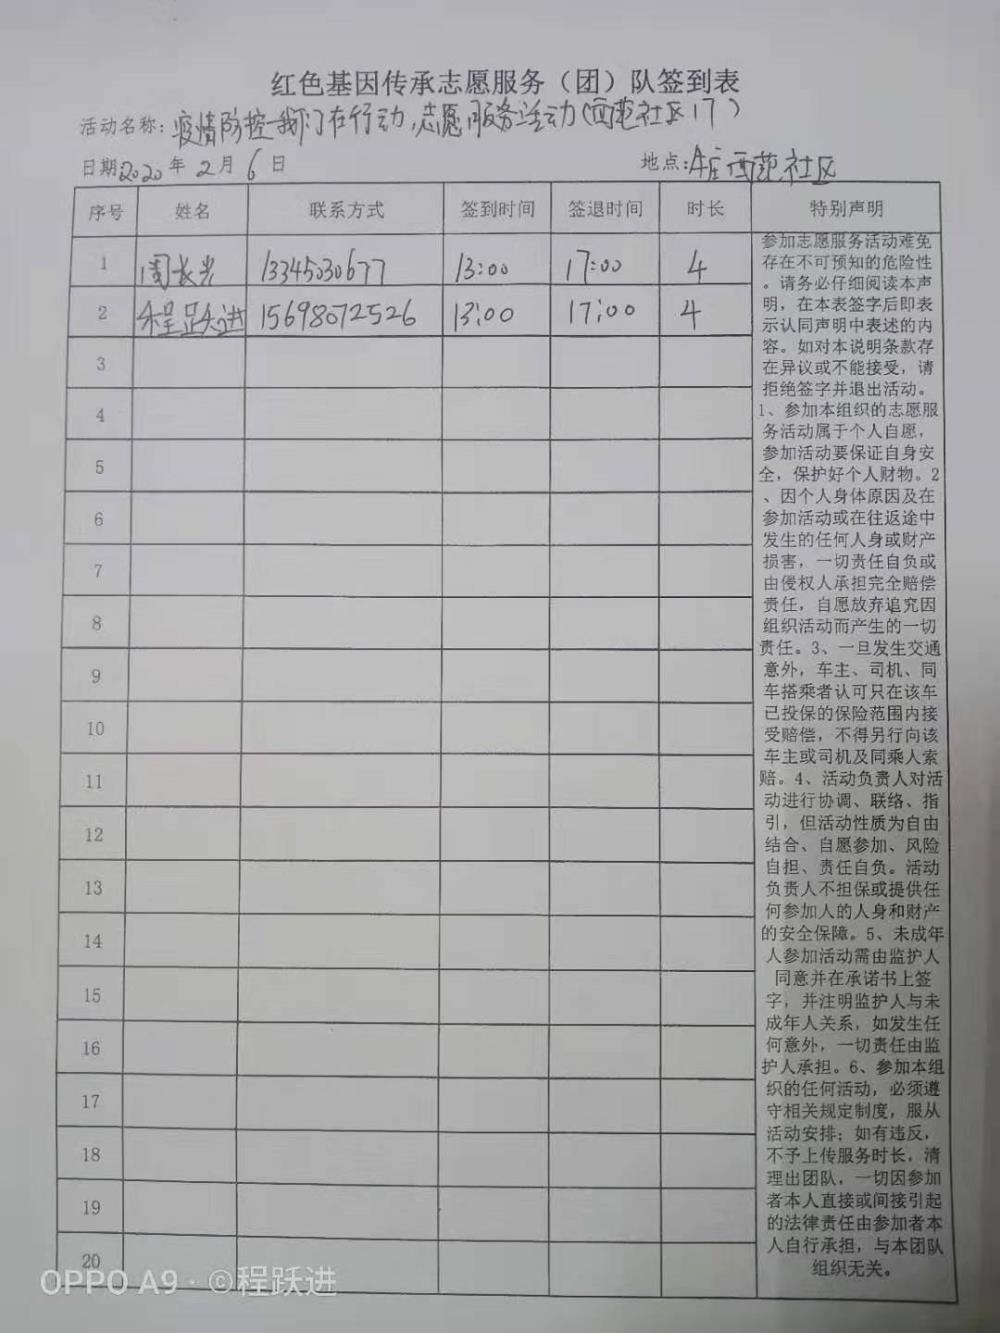 红色基因传承志愿服务（团）队签到表
活动名称：疫情防控我们在行动,志愿服务活动(西苑社区17)
日期2020年2月6日 地点：西苑社区
序号 姓名 联系方式 签到时间 签退时间 时长 特别声明
1 周长光 13345030677 13:00 17:00 4
2 程跃进 15698072526 13:00 17:00 4
3
4
5
6
7
8
9
10
11
12
13
14
15
16
17
18
19
20
参加志愿服务活动难免
存在不可预知的危险性
。请务必仔细阅读本声
明，在本表签字后即表
示认同声明中表述的内
容。如对本说明条款存
在异议或不能接受，请
拒绝签字并退出活动。
1、参加本组织的志愿服
务活动属于个人自愿，
参加活动要保证自身安
全，保护好个人财物。2
、因个人身体原因及在
参加活动或在往返途中
发生的任何人身或财产
损害，一切责任自负或
由侵权人承担完全赔偿
责任，自愿放弃追究因
组织活动而产生的一切
责任。3、一旦发生交通
意外，车主、司机、同
车搭乘者认可只在该车
已投保的保险范围内接
受赔偿，不得另行向该
车主或司机及同乘人索
赔。4、活动负责人对活
动进行协调、联络、指
引，但活动性质为自由
结合、自愿参加、风险
自担、责任自负。活动
负责人不担保或提供任
何参加人的人身和财产
的安全保障。5、未成年
人参加活动需由监护人
同意并在承诺书上签
字，并注明监护人与未
成年人关系，如发生任
何意外，一切责任由监
护人承担。6、参加本组
织的任何活动，必须遵
守相关规定制度，服从
活动安排；如有违反，
不予上传服务时长，清
理出团队，一切因参加
者本人直接或间接引起
的法律责任由参加者本
人自行承担，与本团队
组织无关。
OPPO A9 · ©程跃进